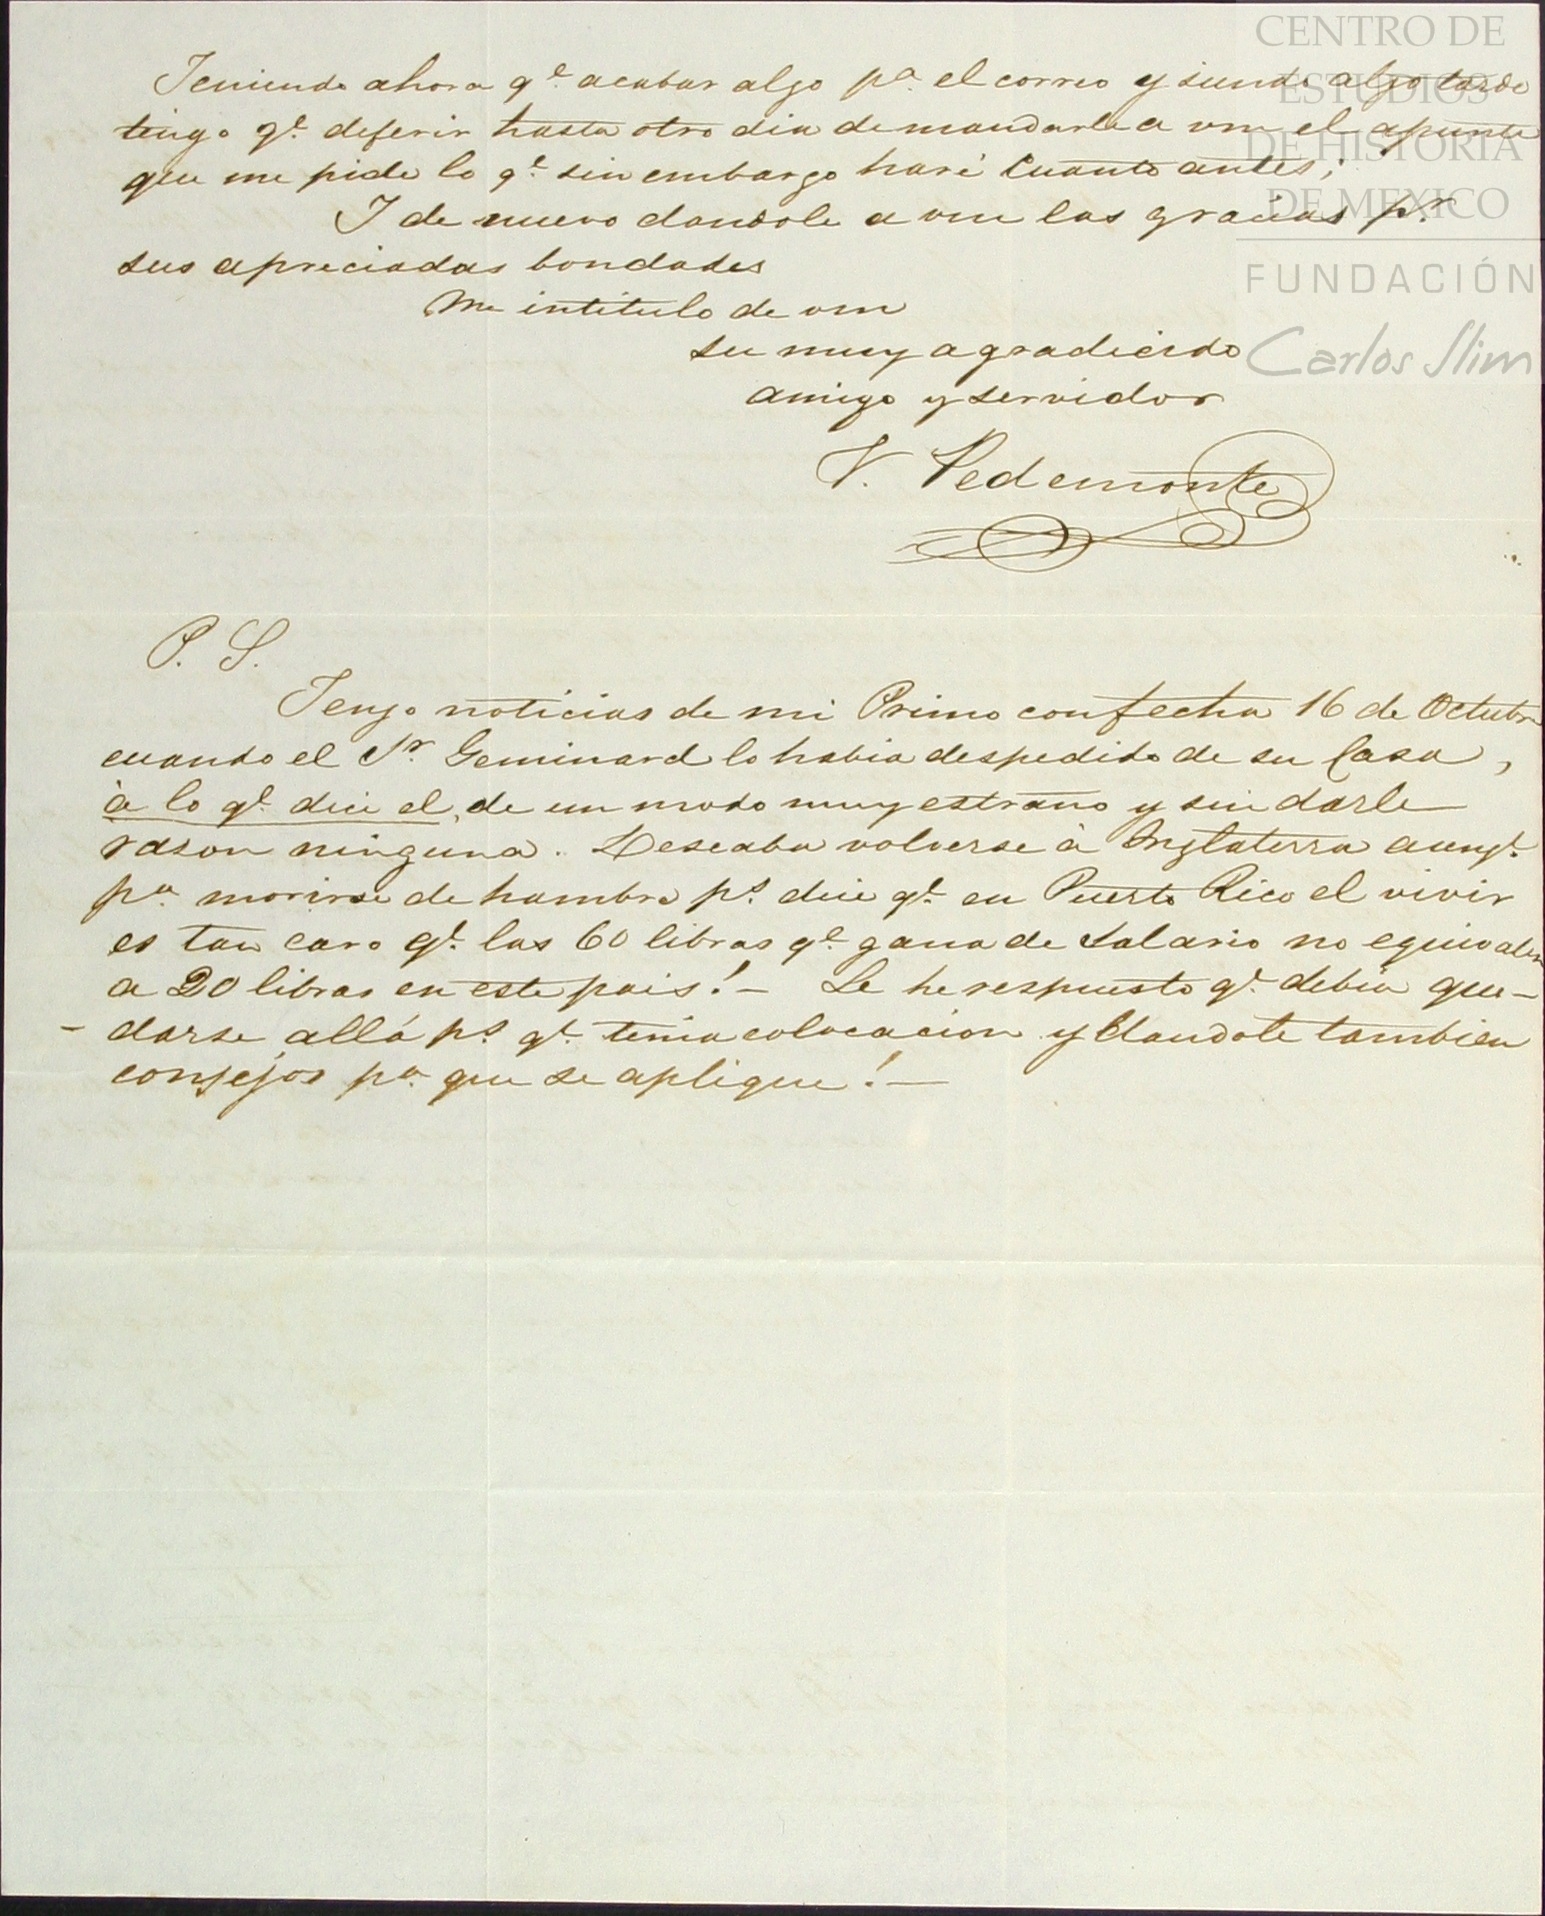 CENTRO DE
ESTUDIOS
DE HISTORIA
DE MEXICO
FUNDACIÓN
Carlos Slim
Teniendo ahora q.e acabar algo p.a el correo y siendo algo tarde
tengo q.e deferir hasta otro dia de mandarle a vm el apunte
que me pide lo q.e sin embargo haré cuanto antes;
I de nuevo dandole a vm las gracias p.r
sus apreciadas bondades
Me intitulo de vm
su muy agradecido
amigo y servidor
V. Pedemonte
P. S.
Tengo noticias de mi Primo con fecha 16 de Octubre
cuando el S.r Geminard lo habia despedido de su Casa,
à lo q.e dice el, de un modo muy estraño y sin darle
rason ninguna. Deseaba volverse à Inglaterra aunq.e
p.a morirse de hambre p.s dice q.e en Puerto Rico el vivir
es tan caro q.e las 60 libras q.e gana de salario no equivalen
a 20 libras en este pais! — Le he respuesto q.e debia que-
- darse allá p.s q.e tenia colocacion y dandole tambien
consejos p.a que se aplique! —